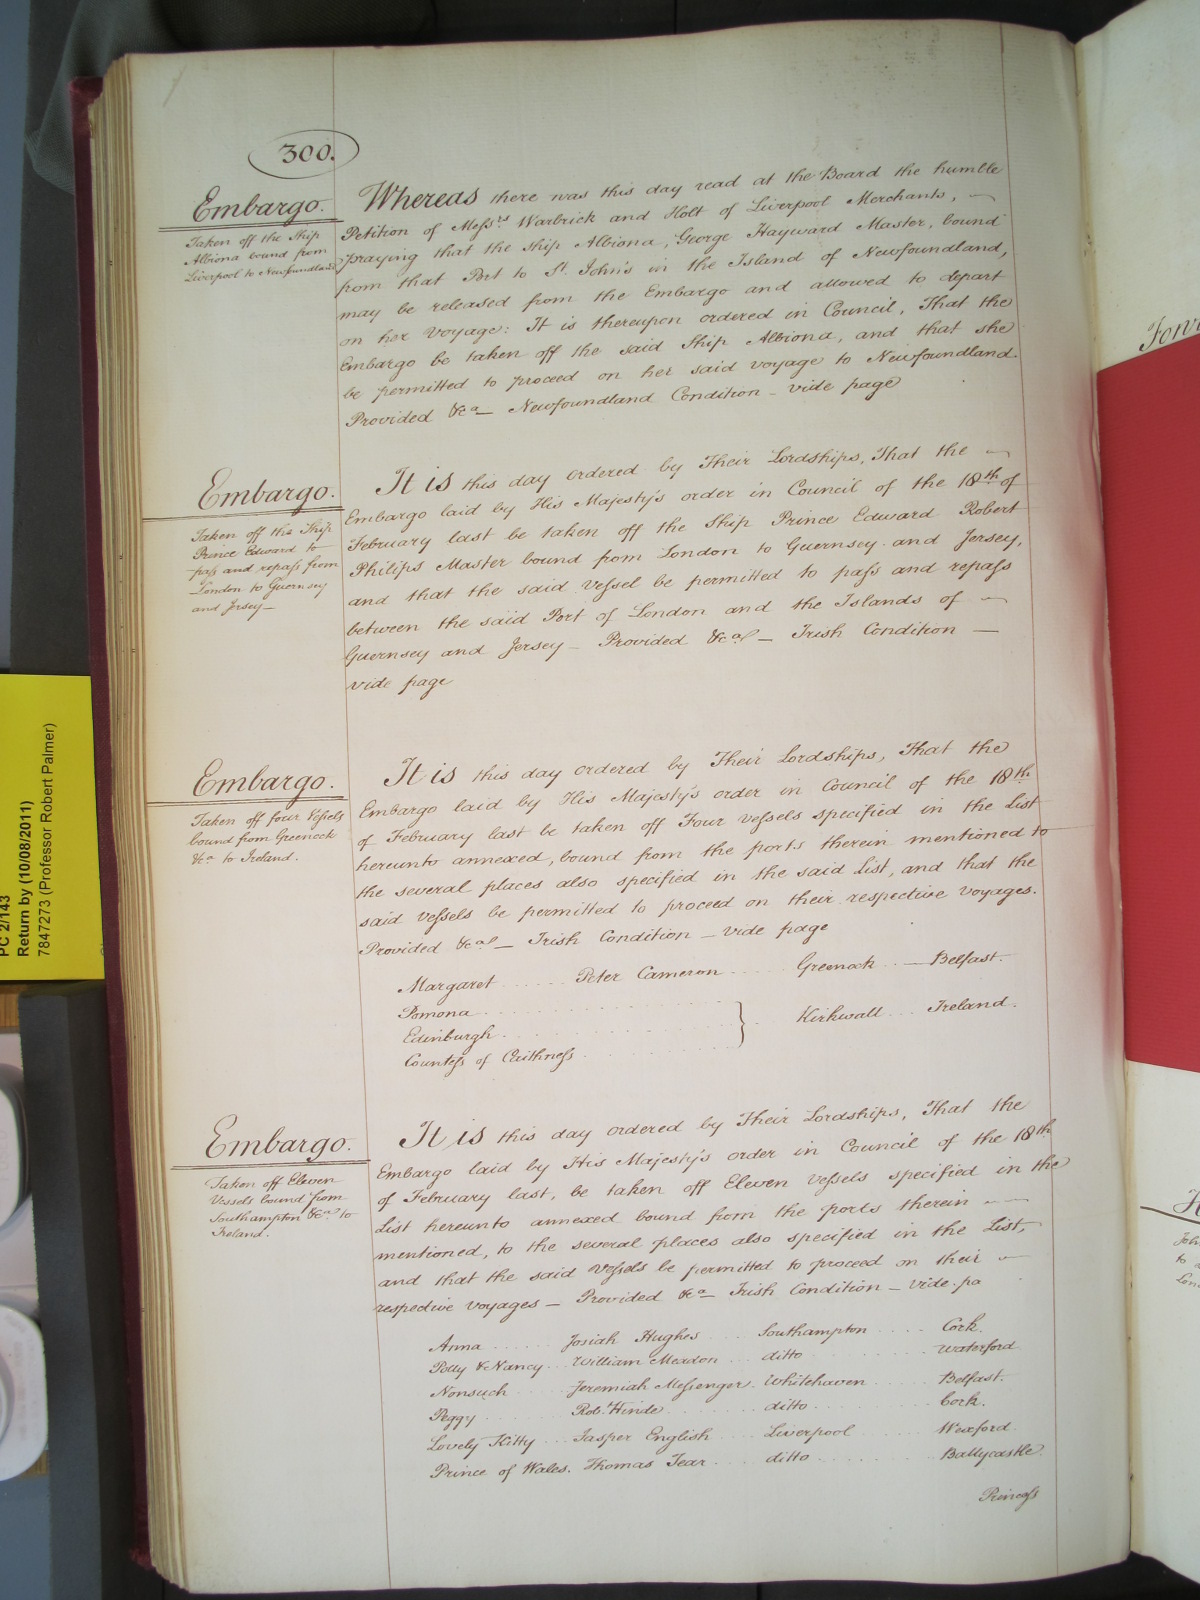 300.
Embargo.
Taken off the Ship
Albiona bound from
Liverpool to Newfoundland
Whereas there was this day read at the Board the humble
Petition of Messrs Warbrick and Holt of Liverpool Merchants, —
praying that the ship Albiona, George Hayward Master, bound
from that Port to St. John's in the Island of Newfoundland,
may be released from the Embargo and allowed to depart
on her Voyage: It is thereupon ordered in Council, That the
Embargo be taken off the said Ship Albiona, and that she
be permitted to proceed on her said voyage to Newfoundland.
Provided &ca — Newfoundland Condition - vide page
Embargo.
Taken off the Ship
Prince Edward to
pass and repass from
London to Guernsey
and Jersey —
It is this day ordered by Their Lordships, That the —
Embargo laid by His Majesty's order in Council of the 18th of
February last be taken off the Ship Prince Edward Robert
Philips Master bound from London to Guernsey and Jersey,
and that the said Vessel be permitted to pass and repass
between the said Port of London and the Islands of —
Guernsey and Jersey - Provided &cal — Irish Condition —
vide page
Embargo.
Taken off four Vessels
bound from Greenock
&ca to Ireland.
It is this day ordered by Their Lordships, That the
Embargo laid by His Majesty's order in Council of the 18th
of February last be taken off Four Vessels specified in the List
hereunto annexed, bound from the ports therein mentioned to
the several places also specified in the said List, and that the
said Vessels be permitted to proceed on their respective voyages.
Provided &cal — Irish Condition — vide page
Margaret ...... Peter Cameron ..... Greenock .. — Belfast.
Pomona
Edinburgh } Kirkwall ... Ireland.
Countess of Caithness
Embargo.
Taken off Eleven
Vessels bound from
Southampton &ca to
Ireland.
It is this day ordered by Their Lordships, That the
Embargo laid by His Majesty's order in Council of the 18th
of February last, be taken off Eleven Vessels specified in the
List hereunto annexed bound from the ports therein —
mentioned, to the several places also specified in the List,
and that the said Vessels be permitted to proceed on their —
respective voyages — Provided &ca — Irish Condition — vide pa
Anna ...... Josiah Hughes .... Southampton .... Cork.
Polly & Nancy .. William Meadon ... ditto ....... Waterford
Nonsuch .... Jeremiah Messenger. Whitehaven ..... Belfast.
Peggy ....... Rob. Hinde ....... ditto ........ Cork.
Lovely Kitty ... Jasper English .... Liverpool ...... Wexford.
Prince of Wales. Thomas Tear .... ditto ........ Ballycastle
Princess
PC 2/143
Return by (10/08/2011)
7847273 (Professor Robert Palmer)